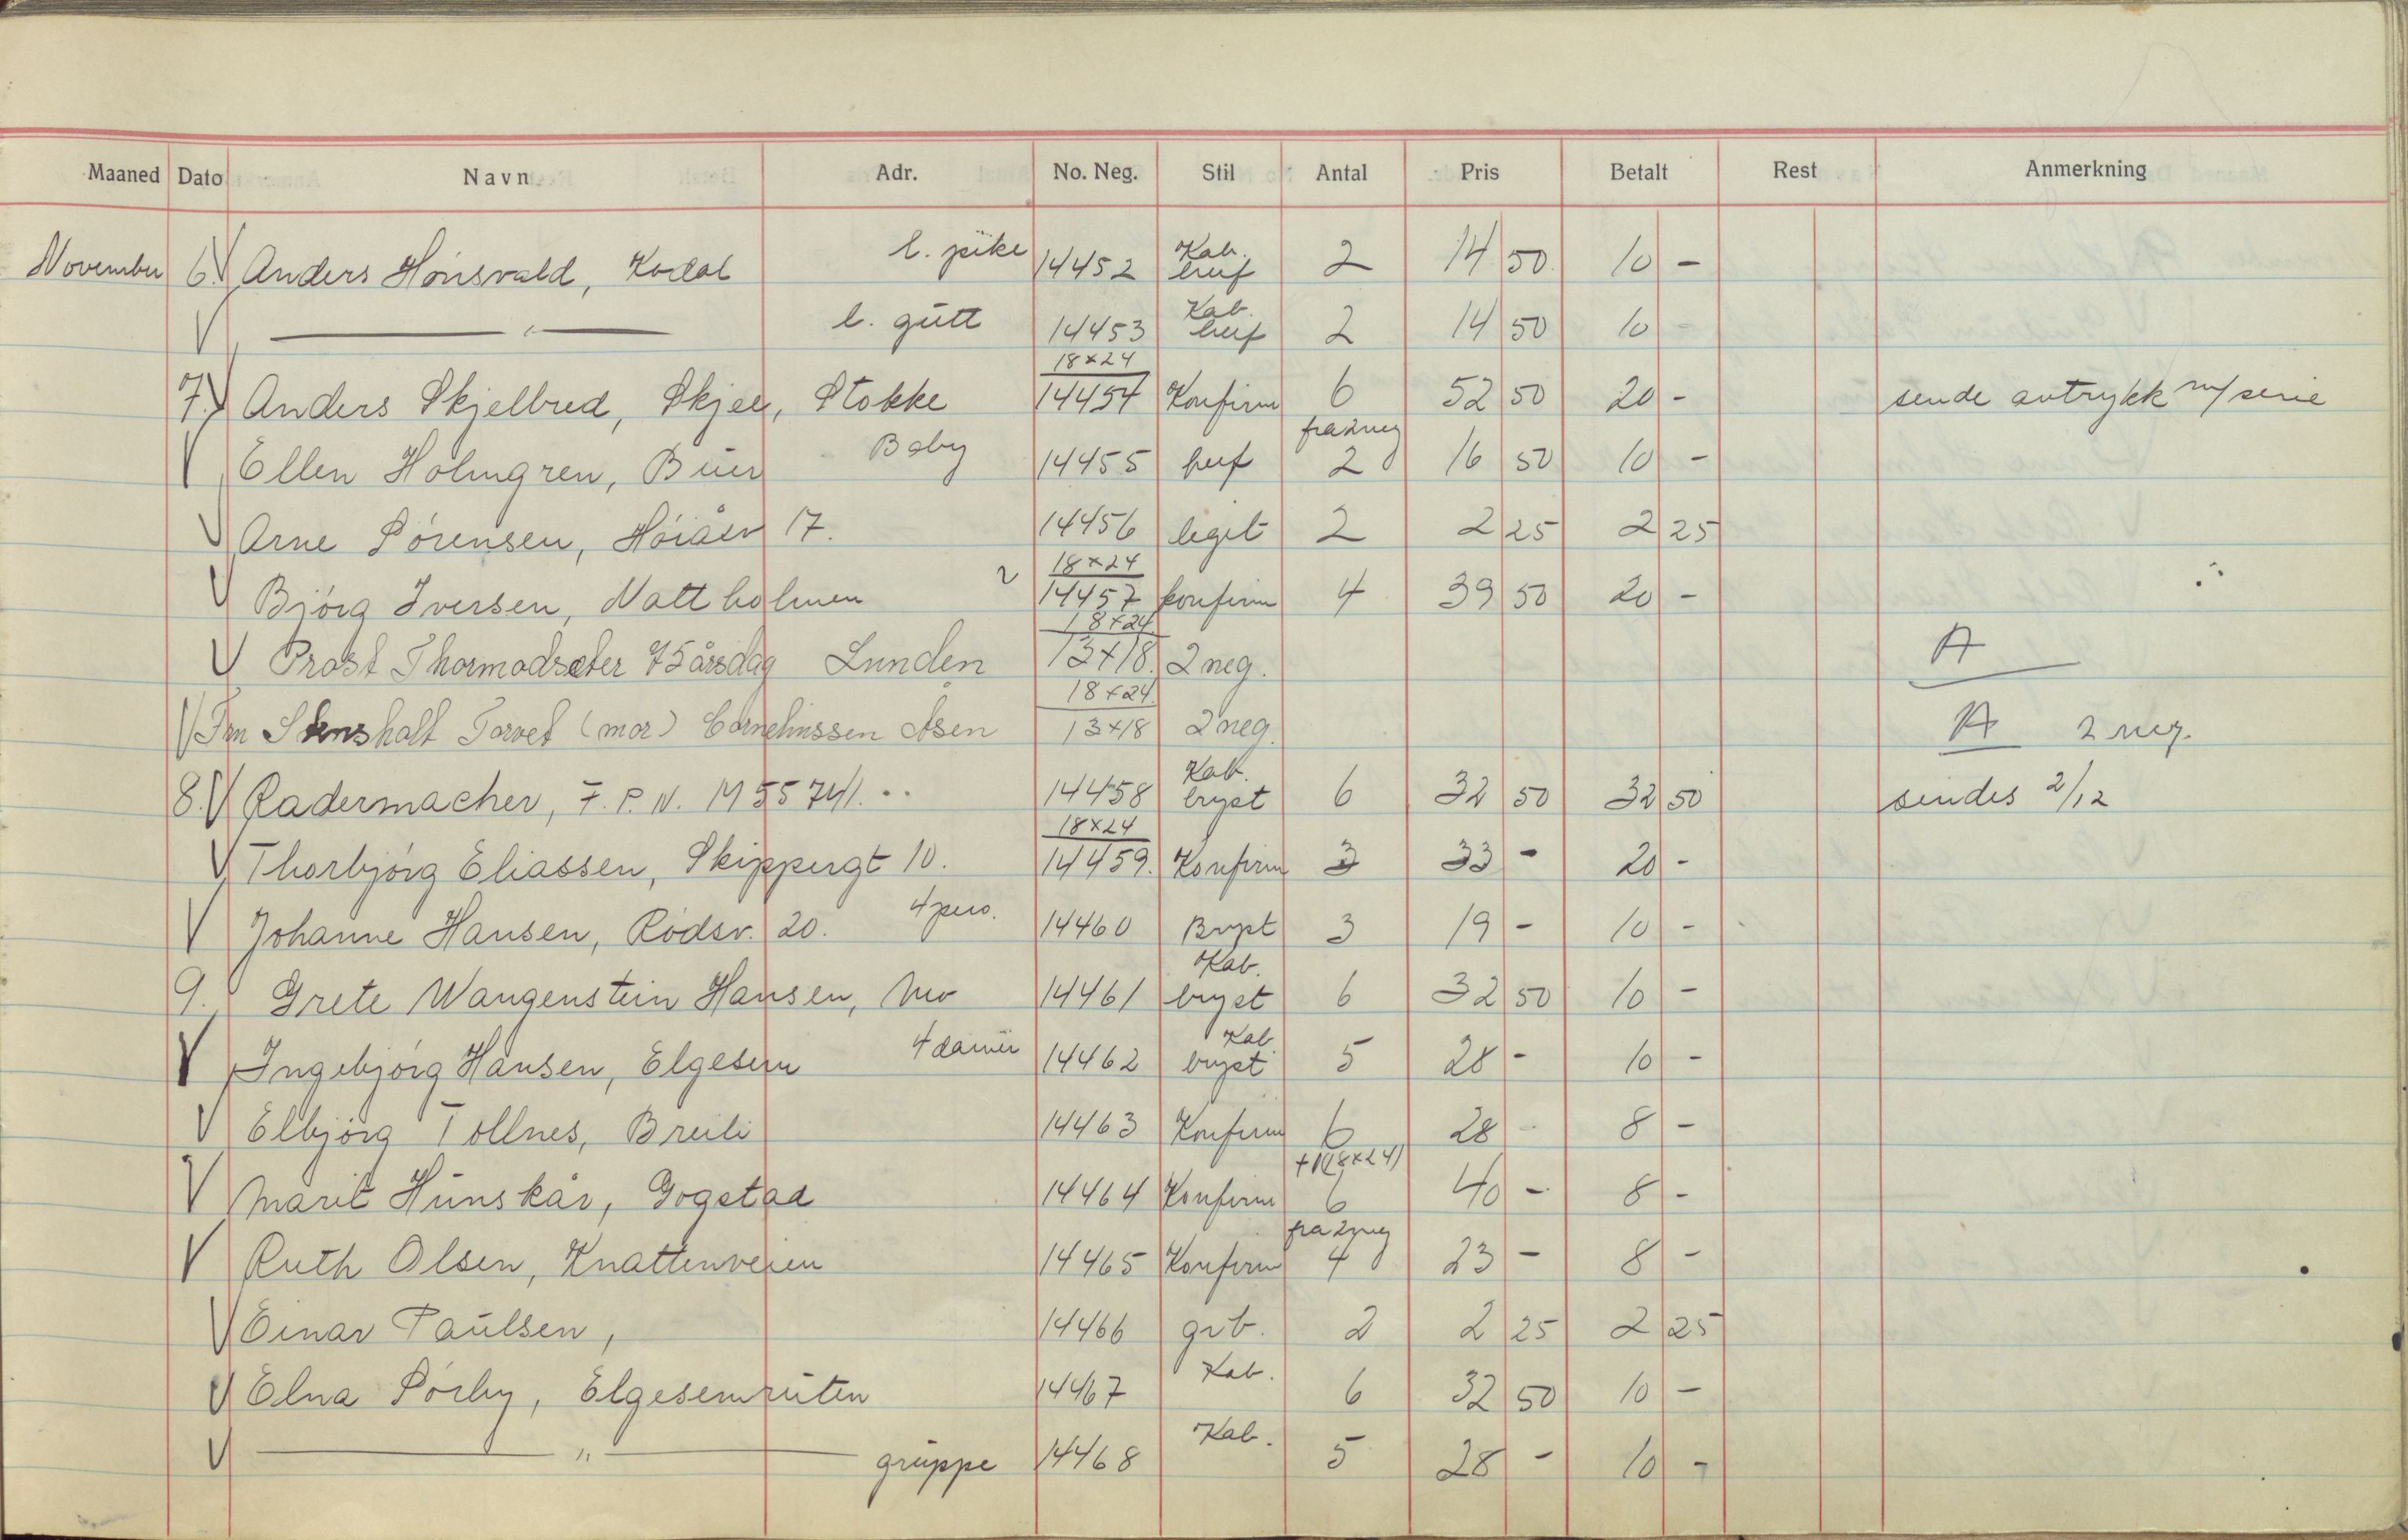 Maaned Dato Navn Adr. No. Neg. Stil Antal Pris Betalt Rest Anmerkning
November 6. V Anders Hönsvald, Kodal l. pike 14452 Kab. 2 14 50 10 -
V — " — l. gutt 14453 Kab. 2 14 50 10 -
7. V Anders Skjelbred, Skjee, Stokke 18x24 14454 Konfirm 6 52 50 20 - sende avtrykk m/ serie
V Ellen Holmgren, Buer Baby 14455 fra 2 neg 2 16 50 10 -
V Arne Sörensen, Höiåsv 17. 14456 legit 2 2 25 2 25
V Björg Iversen, Nattholmen 2 18x24 14457 konfirm 4 39 50 20 -
V Prost Thormodsæter 75 årsdag Lunden 18x24 13x18. 2 neg. A
V Fru Stenshalt Torvet (mor) Cornelinssen Åsen 18x24 13x18 2 neg. A 2 neg.
8. V Radermacher, F. P. N. M 55 741. 14458 Kab. bryst 6 32 50 32 50 sendes 2/12
V Thorbjörg Eliassen, Skippergt 10. 18x24 14459. Konfirm 3 33 - 20 -
V Johanne Hansen, Rödsv. 20. 4 pers. 14460 Bryst 3 19 - 10 -
9. Grete Wangenstein Hansen, Mo 14461 Kab. bryst 6 32 50 10 -
V Ingebjörg Hansen, Elgesem 4 damer 14462 Kab bryst 5 28 - 10 -
V Elbjörg Tollnes, Breili 14463 Konfirm 6 28 - 8 -
V Marit Hunskår, Gogstad 14464 Konfirm +1(18x24) 6 40 - 8 -
V Ruth Olsen, Knattenveien 14465 Konfirm fra 2 neg 4 23 - 8 -
V Einar Paulsen, 14466 grb. 2 2 25 2 25
V Elna Sörby, Elgesemruten 14467 Kab. 6 32 50 10 -
V — " — gruppe 14468 Kab. 5 28 - 10 -